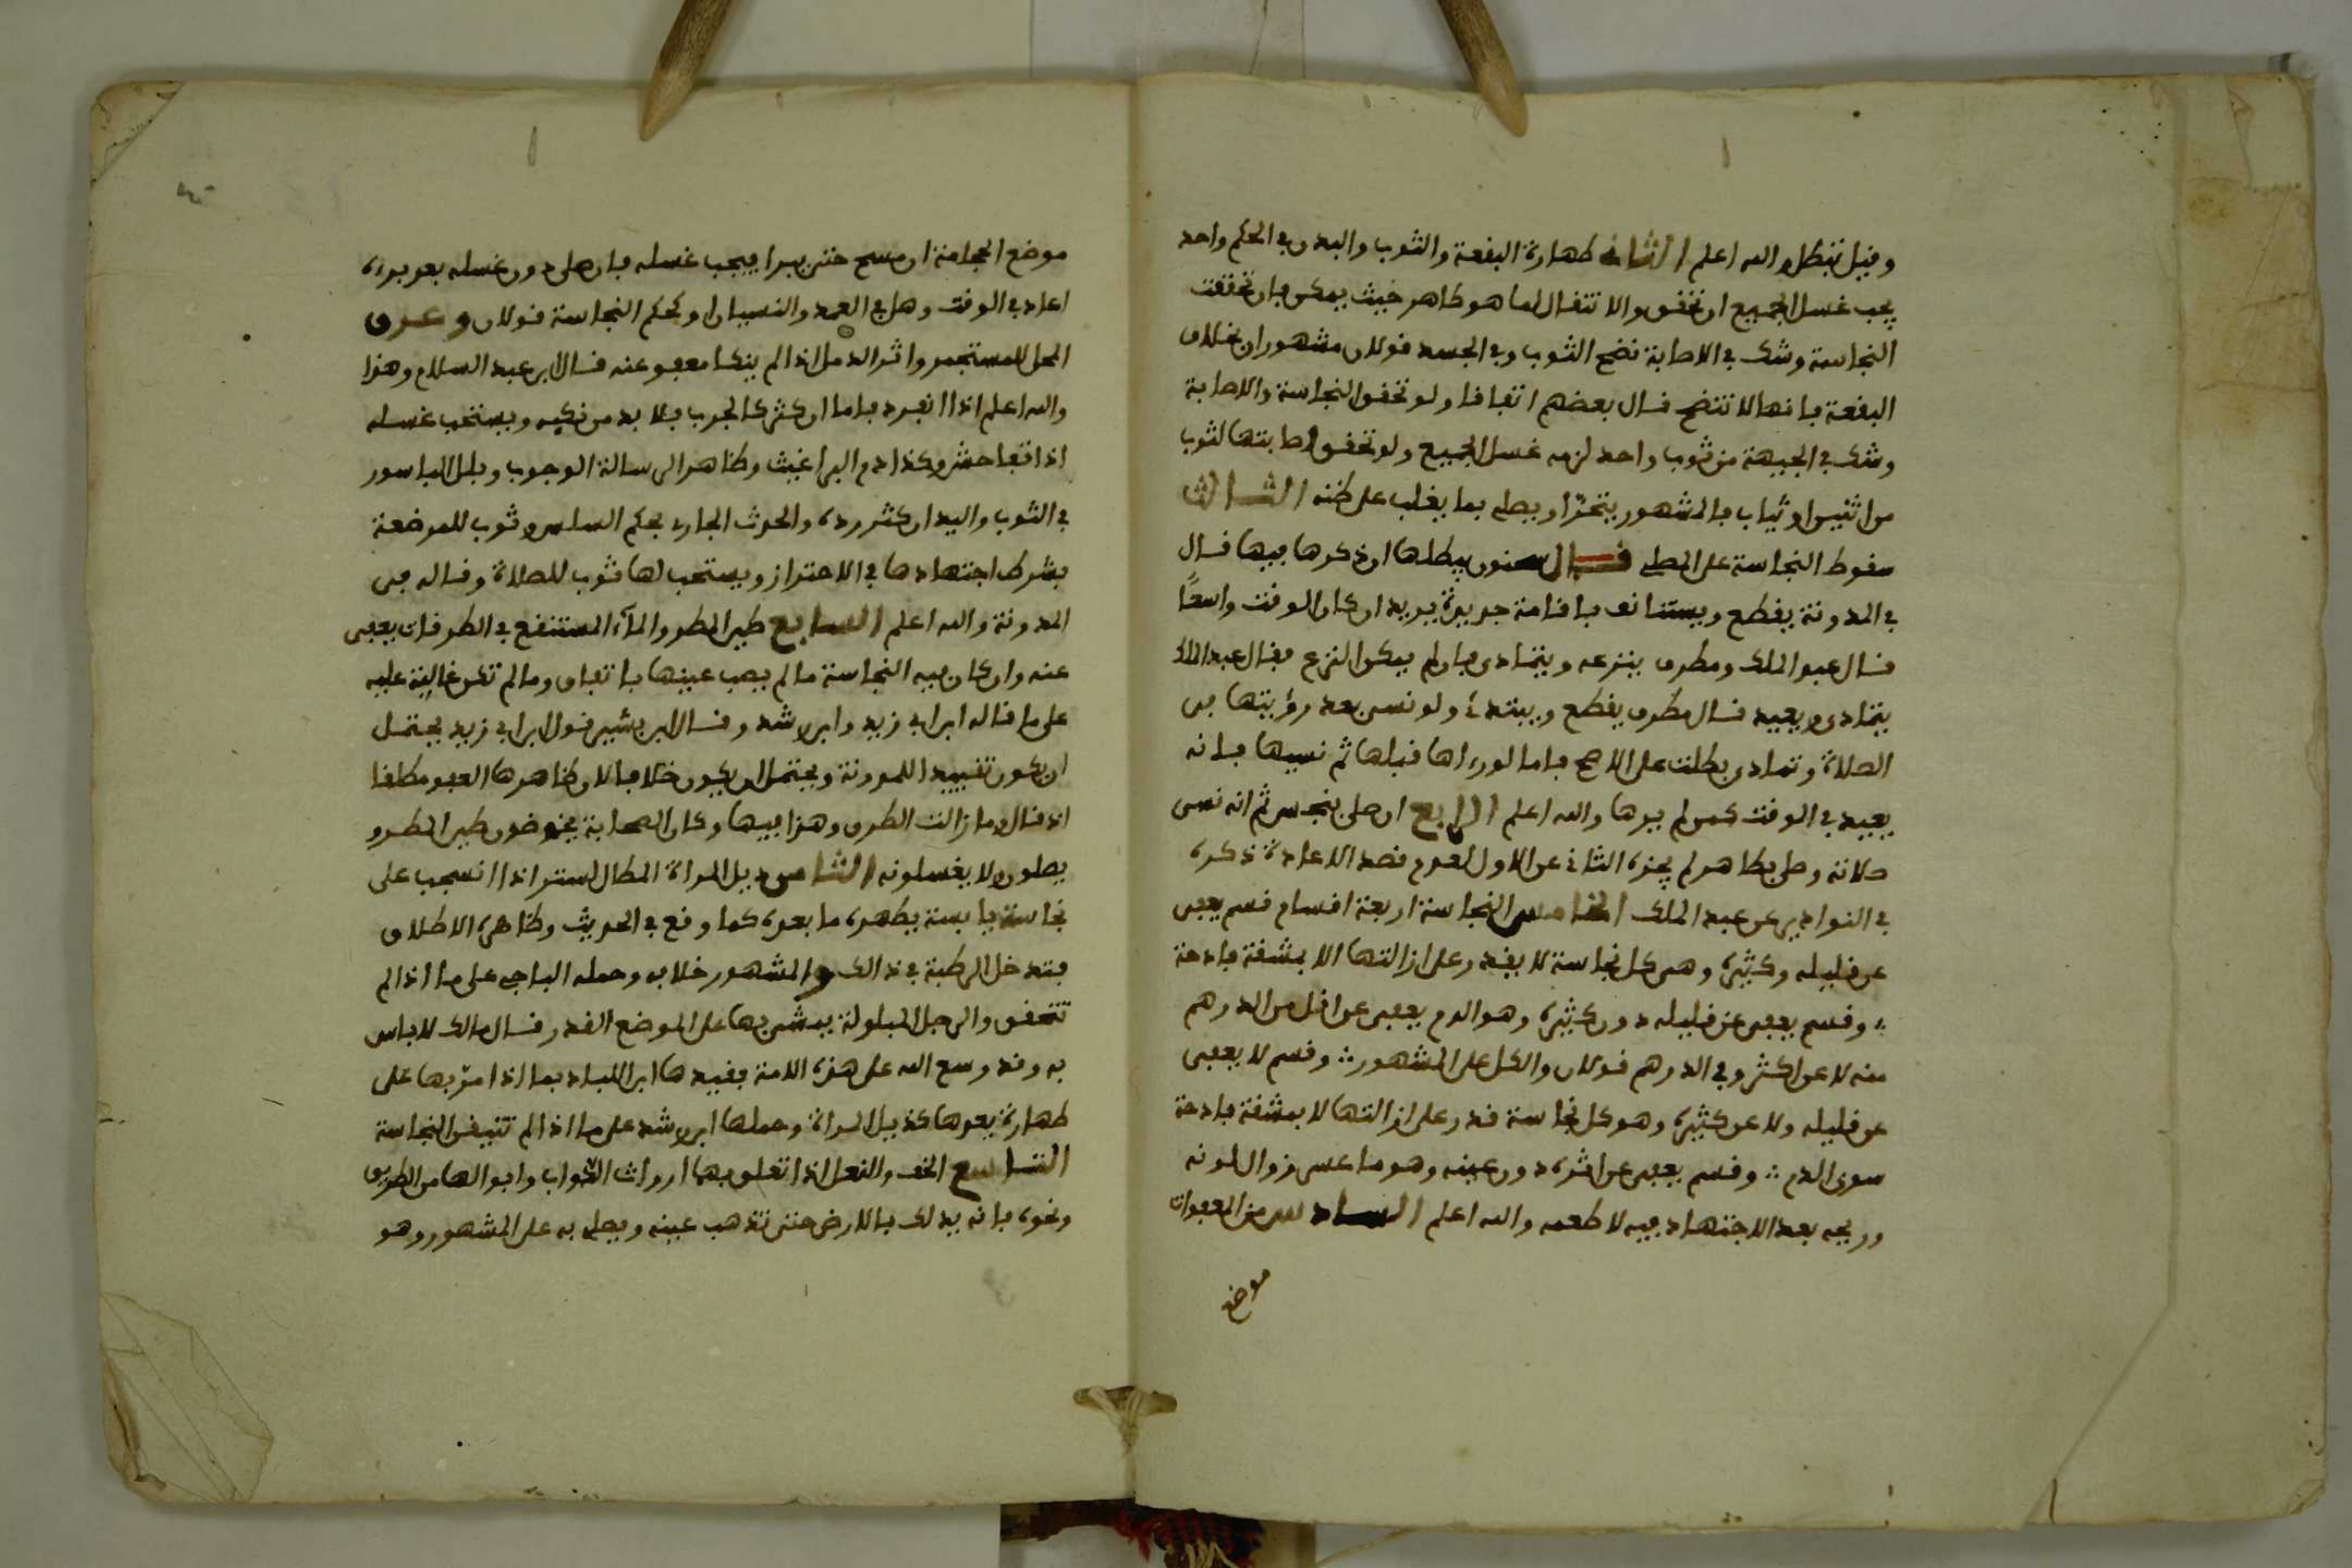 وقيل تبطل والله اعلم الثاني طهارة البقعة والثوب والبدن في الحكم واحد
يجب غسل الجميع ان تحقق والانتقال لما هو طاهر حيث يمكن فان تحققت
النجاسة وشك في الاصابة نضح الثوب وفي الجسد قولان مشهوران بخلاف
البقعة فانها لا تنضح قال بعضهم اتفاقا ولو تحقق النجاسة والاصابة
وشك في الجهة من ثوب واحد لزمه غسل الجميع ولو تحقق اصابتها لثوب
من اثنين او ثياب فالمشهور يتحرّا ويصلي بما يغلب على ظنه الثالث
سقوط النجاسة على المصلي قال سحنون يبطلها او ذكرها فيها قال
في المدونة يقطع ويستانف باقامة جديدة يريد ان كان الوقت واسعًا
قال عبد الملك ومطرف ينزعه ويتمادى فان لم يمكن النزع فقال عبد الملك
يتمادى ويعيد قال مطرف يقطع ويبتدئ ولو نسى بعد رؤيتها في
الصلاة وتمادى بطلت على الاصح فاما لو رءاها قبلها ثم نسيها فانه
يعيد في الوقت كمن لم يرها والله اعلم الرابع ان صلى بنجس ثم انه نسى
صلاته وصلى بطاهر لم يجزه الثاني عن الاول لعدم قصد الاعادة ذكره
في النوادير عن عبد الملك الخامس النجاسة اربعة اقسام قسم يعفى
عن قليله وكثيره وهي كل نجاسة لا يقدر على ازالتها الا بمشقة فادحة
وقسم يعفى عن قليله دون كثيره وهو الدم يعفى عن اقل من الدرهم
منه لا عن اكثر وفي الدرهم قولان والكل على المشهور وقسم لا يعفى
عن قليله ولا عن كثيره وهو كل نجاسة قدر على ازالتها لا بمشقة فادحة
سوى الدم وقسم يعفى عن اثره دون عينه وهو ما عسى زوال لونه
وريحه بعد الاجتهاد فيه لا طعمه والله اعلم السادس من المعفوات
موضع
موضع الحجامة ان مسح حتى يبرا فيجب غسله فان صلى دون غسله بعد برئه
اعاد في الوقت وهل في العمد والنسيان او كحكم النجاسة قولان وعرق
المحل للمستجمر واثر الدمل اذا لم ينكا معفو عنه قال ابن عبد السلام وهذا
والله اعلم اذا انفرد فاما ان كثر كالجرب فلا بد من نكيه ويستحب غسله
اذا تفاحش وكذا دم البراغيث وظاهر الرسالة الوجوب وبلل الباسور
في الثوب واليد ان كثر رده والحدث الجاري بحكم السلس وثوب للمرضعة
بشرط اجتهادها في الاحتراز ويستحب لها ثوب للصلاة وقاله في
المدونة والله اعلم السابع طين المطر والمآء المستنقع في الطرقات يعفى
عنه وان كان فيه النجاسة ما لم يصب عينها باتفاق وما لم تكن غالبة عليه
على ما قاله ابن ابي زيد وابن رشد وقال ابن بشير قول ابن ابي زيد يحتمل
ان يكون تقييدا للمدونة ويحتمل ان يكون خلافا لان ظاهرها العفو مطلقا
اذ قال وما زالت الطرق وهذا فيها وكان الصحابة يخوضون طين المطر و
يصلون ولا يغسلونه الثامن ذيل المراة المطال لستر اذا انسحب على
نجاسة يابسة يطهره ما بعده كما وقع في الحديث وظاهره الاطلاق
فتدخل الرطبة في ذالك والمشهور خلافه وحمله الباجي على ما اذا لم
تتحقق والرجل المبلولة يمشى بها على الموضع القذر قال مالك لا باس
به وقد وسع الله على هذه الامة فقيدها ابن اللباد بما اذا مرّ بها على
طهارة بعدها كذيل المراة وحملها ابن رشد على ما اذا لم تتيقن النجاسة
التاسع الخف والنعل اذا تعلق بهما ارواث الدواب وابوالها من الطريق
ونحوه فانه يدلك بالارض حتى تذهب عينه ويصلي به على المشهور وهو